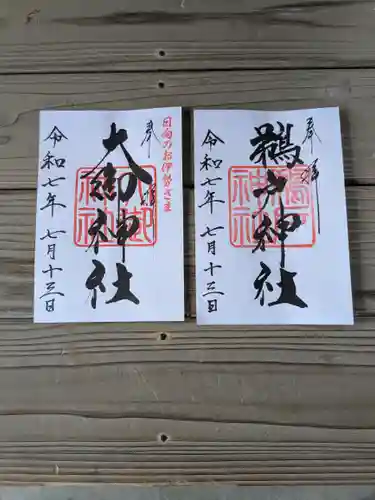 日向のお伊勢さま
奉拝
大御神社
令和七年 七月十三日
奉拝
鵜戸神社
令和七年 七月十三日